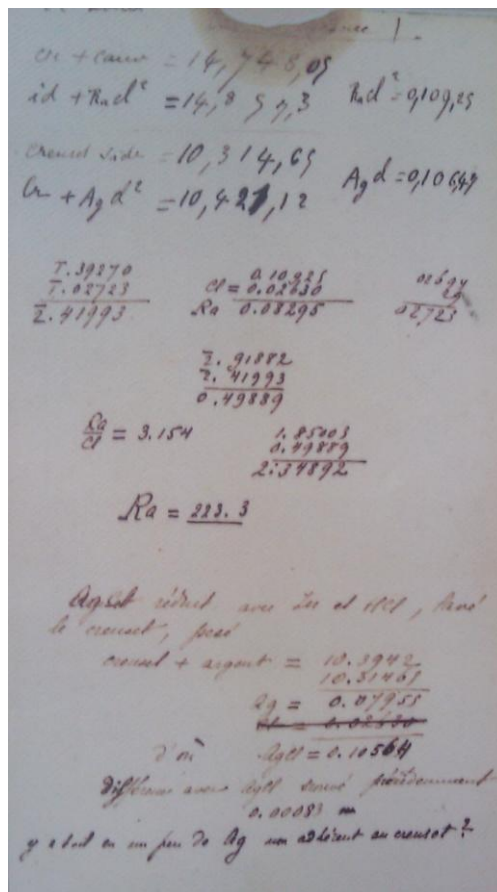 Cr + couv = 14,748,05
id + RaCl² = 14,857,3 RaCl² = 0,109,25
Creuset vide = 10,314,65
Cr + AgCl² = 10,421,12 AgCl = 0,106,47
1̄.39270 0.10925 02694
1̄.02723 Cl = 0.02630 29
2̄.41993 Ra 0.08295 02723
2̄.91882
2̄.41993
0.49889
Ra/Cl = 3.154 1.85003
0.49889
2.34892
Ra = 223.3
réduit avec Zn et HCl, lavé
le creuset, pesé
creuset + argent = 10.3942
10.31465
Ag = 0.07955
Cl = 0.02630
d'où AgCl = 0.10564
différence avec AgCl précédemment
0.00083
y a-t-il eu un peu de Ag non adhérent au creuset ?